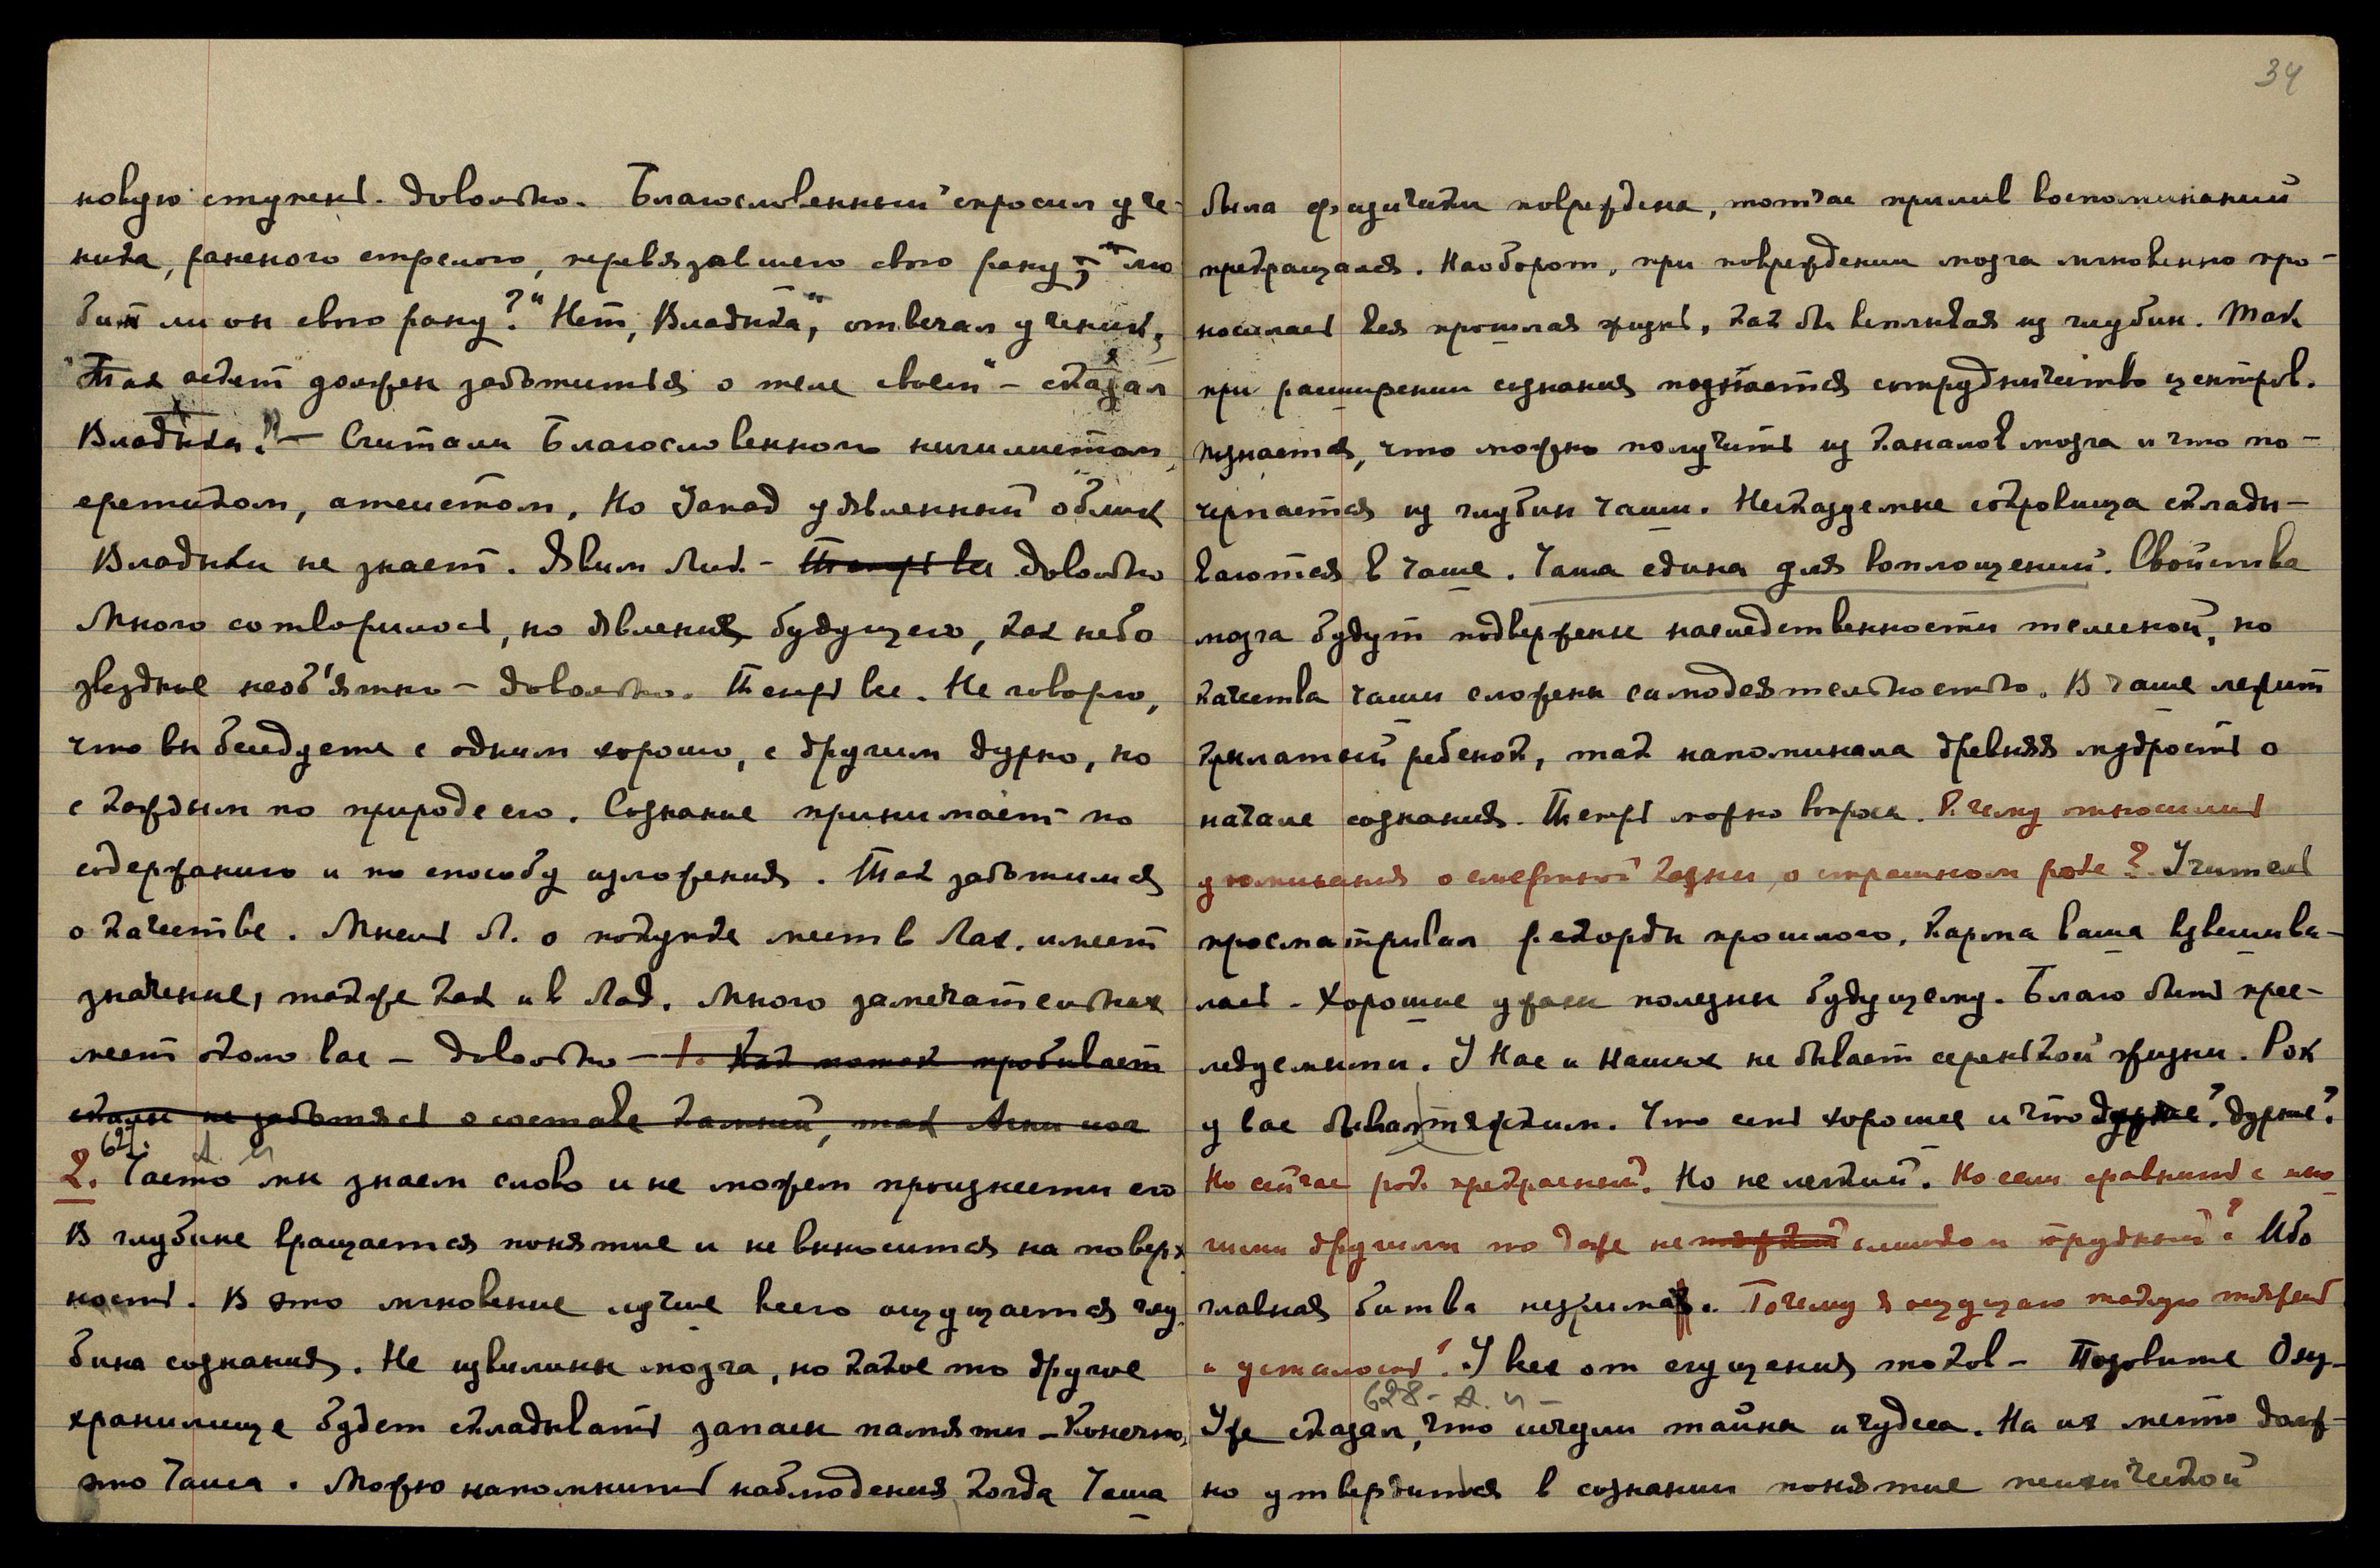 новую ступень. Довольно. Благословенный спросил уче-
ника, раненого стрелою, перевязавшего свою рану; "лю
бит ли он свою рану?" "Нет, Владыка," отвечал ученик,
"Так аскет должен заботиться о теле своем" – сказал
Владыка." – Считали Благословенного нигилистом,
еретиком, атеистом. Но Запад уявленный облик
Владыки не знает. Явим Лик. – Теперь все Довольно
Много сотворилось, но явления будущего, как небо
звездное необ'ятно – довольно. Теперь все. Не говорю,
что вы беседуете с одним хорошо, с другим дурно, но
с каждым по природе его. Сознание принимает по
содержанию и по способу изложения. Так заботимся
о качестве. Мысль Л. о покупке мест в Лах. имеет
значение, также как и в Лад. Много замечательных
мест около вас – довольно – 1. Как поток пробивает
скалы не заботясь о составе камней, так Агни иог
627. А. Й
2. Часто мы знаем слово и не можем произнести его
В глубине вращается понятие и не выносится на поверх
ность. В это мгновение лучше всего ощущается глу
бина сознания. Не извилины мозга, но какое то другое
хранилище будет складывать запасы памяти – Конечно,
это Чаша. Можно напомнить наблюдения, когда Чаша
34
была физически повреждена, тотчас прилив воспоминаний
прекращался. Наоборот, при повреждении мозга мгновенно про-
носилась вся прошлая жизнь, как бы всплывая из глубин. Так
при расширении сознания познается сотрудничество центров.
Познается, что можно получить из каналов мозга и что по-
черпается из глубин чаши. Несказуемые сокровища склады-
ваются в чаше. Чаша едина для воплощений. Свойства
мозга будут подвержены наследственности телесной, но
качества чаши сложены самодеятельностью. В чаше лежит
крылатый ребенок, так напоминала древняя мудрость о
начале сознания. Теперь можно вопросы. К чему относились
упоминания о смертной казни, о страшном роке? Учитель
просматривал рекорды прошлого. Карма ваша взвешива-
лась. Хорошие уроки полезны будущему. Благо быть прес-
ледуемыми. У Нас и Наших не бывает серенькой жизни. Рок
у вас бывал тяжким. Что есть хорошее и что дурное? дурное?
Но сейчас рок прекрасный. Но не легкий. Но если сравнить с мно
гими другими то даже не тяжкий слишком трудный? Ибо
главная битва незрима. Почему я ощущаю такую тяжесть
и усталость? У всех от сгущения токов – Позовите Озу-
628 – А. Й –
Уже сказал, что исчезли тайны и чудеса. На их место долж-
но утвердиться в сознании понятие психической